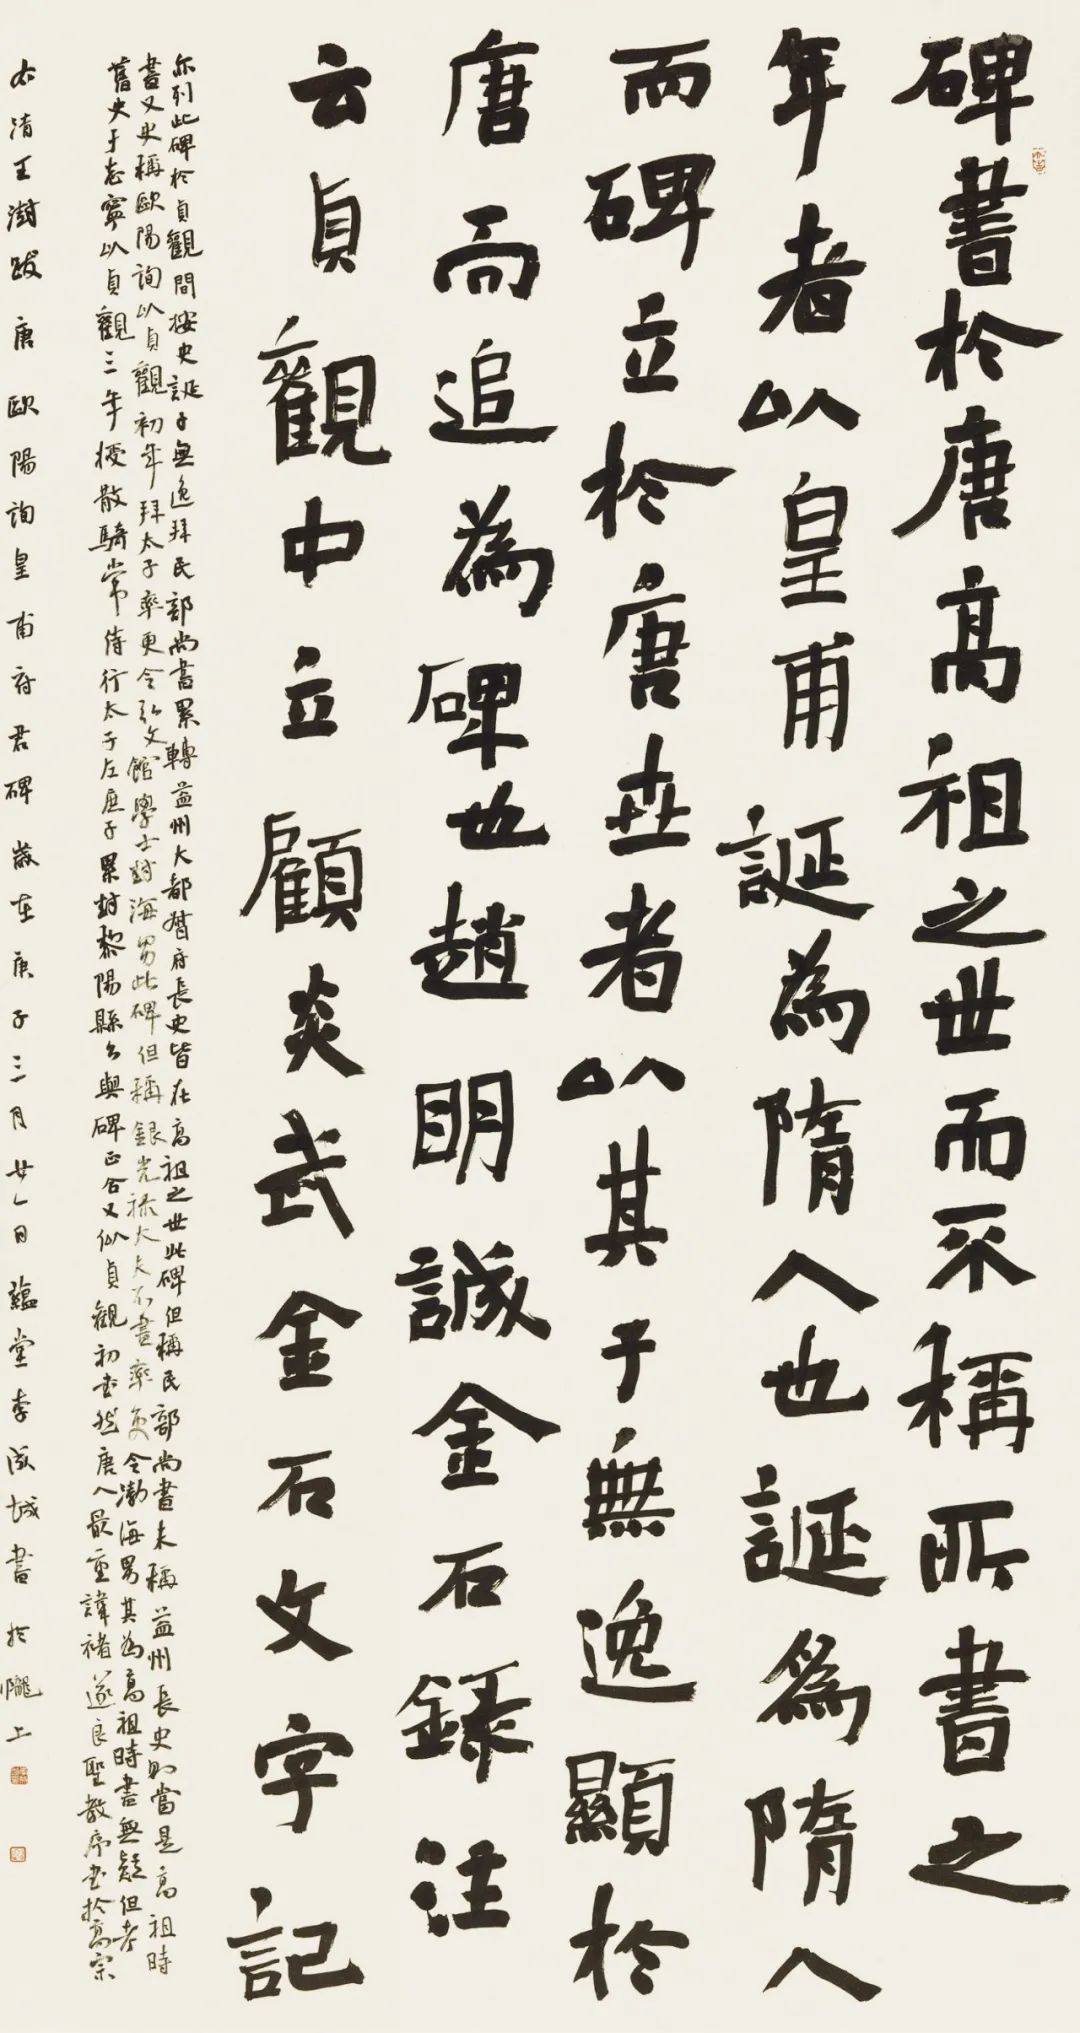 碑書於唐高祖之世而不稱所書之
年者以皇甫誕為隋人也誕為隋人
而碑立於唐世者以其子無逸顯於
唐而追為碑也趙明誠金石録注
云貞觀中立顧炎武金石文字記
亦列此碑於貞觀間按史誕子無逸拜民部尚書累轉益州大都督府長史皆在高祖之世此碑但稱民部尚書未稱益州長史則當是高祖時
書又史稱歐陽詢以貞觀初年拜太子率更令弘文館學士封海男此碑但稱銀光祿大夫不書率更令渤海男其為高祖時書無疑但考
舊史于志寧以貞觀三年授散騎常侍行太子左庶子累封黎陽縣公與碑正合又似貞觀初書然唐人最重諱褚遂良聖教序書於高宗
右清王澍跋唐歐陽詢皇甫府君碑歲在庚子三月廿八日蘊堂李成城書於隴上